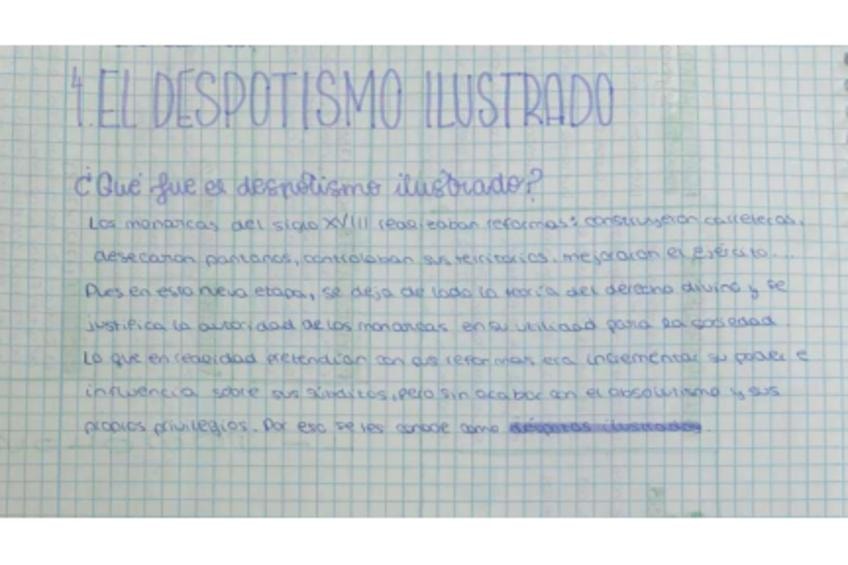 4. EL DESPOTISMO ILUSTRADO
¿Qué fue el despotismo ilustrado?
Los monarcas del siglo XVIII realizaban reformas: construyeron carreteras,
desecaron pantanos, controlaban sus territorios, mejoraron el ejército...
Pues en esta nueva etapa, se deja de lado la teoría del derecho divino y se
justifica la autoridad de los monarcas en su utilidad para la sociedad.
Lo que en realidad pretendían con sus reformas era incrementar su poder e
influencia sobre sus súbditos, pero sin acabar con el absolutismo y sus
propios privilegios. Por eso se les conoce como déspotas ilustrados.